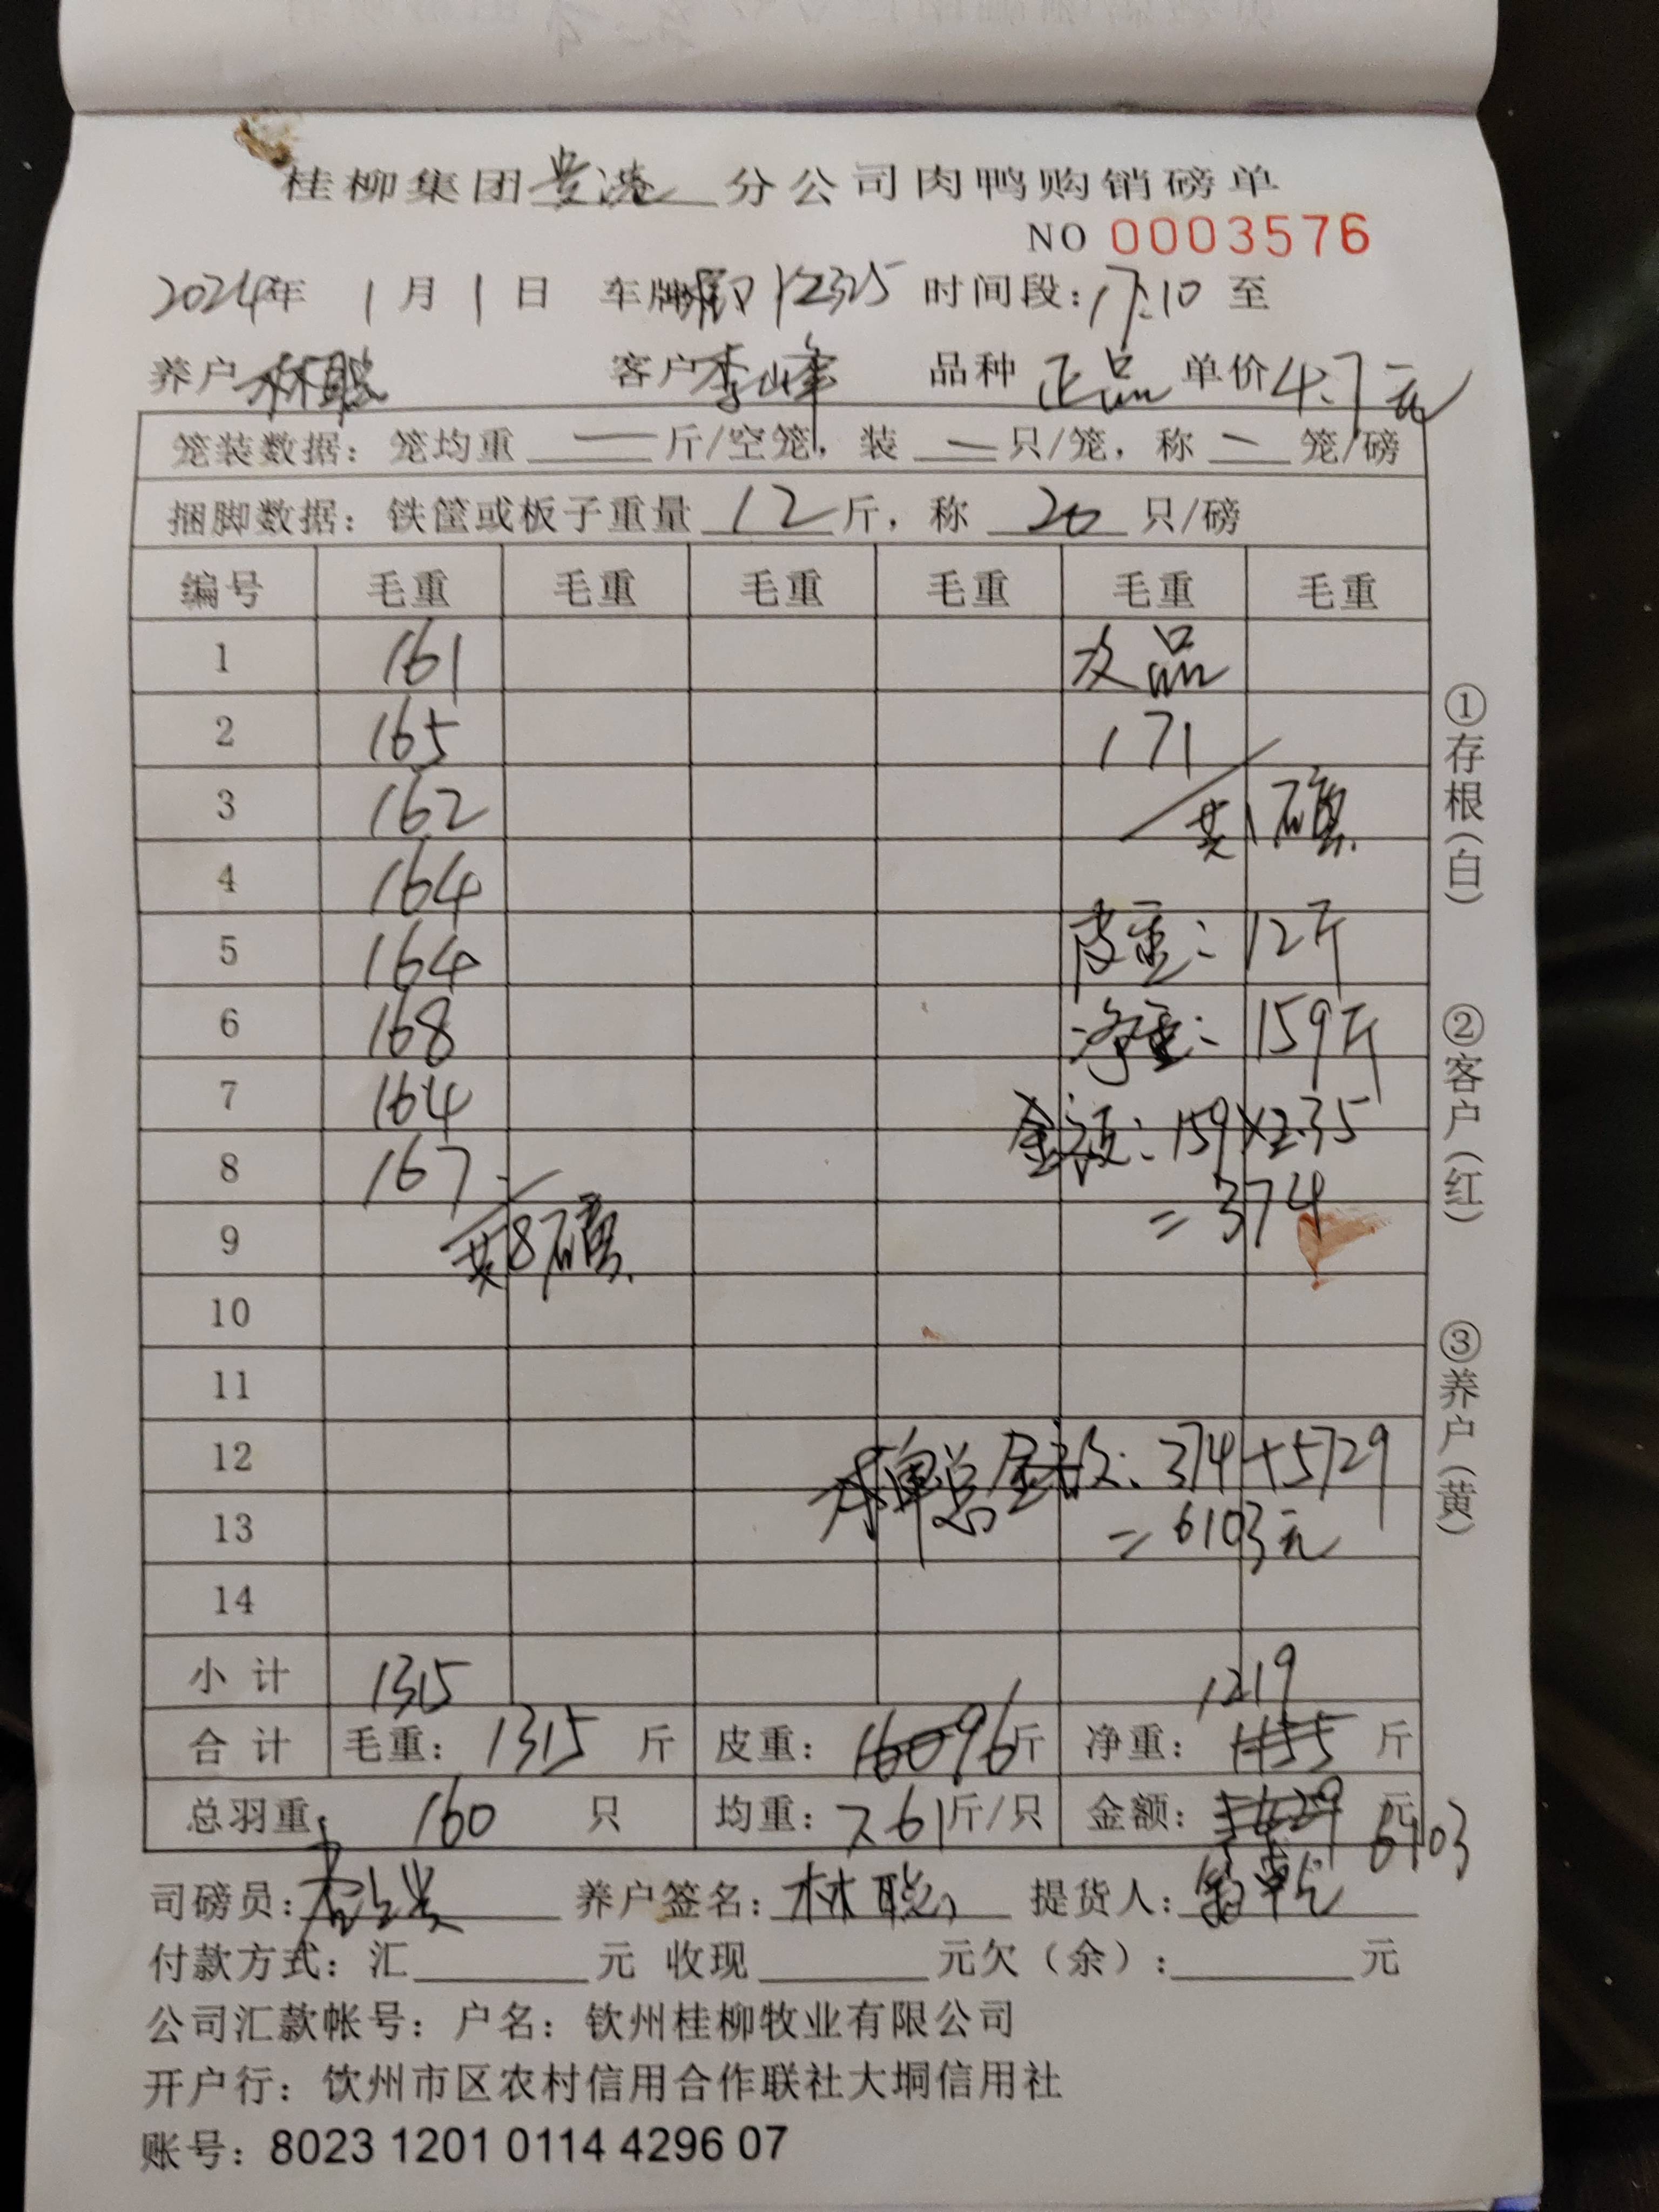 桂柳集团贵港分公司肉鸭购销磅单
NO 0003576
2024年 1月1日 车牌 12325 时间段:17:10 至
养户林聪 客户李峰 品种 正品 单价4.7元
笼装数据:笼均重 — 斤/空笼,装 — 只/笼,称 — 笼/磅
捆脚数据:铁筐或板子重量 12 斤,称 20 只/磅
编号 毛重 毛重 毛重 毛重 毛重 毛重
1 161 次品
2 165 171
3 162 共1磅
4 164
5 164 皮重:12斤
6 168 净重:159斤
7 164 金额:159×2.35
8 167 =374
9 共8磅
10
11
12 本单总金额:374+5729
13 =6103元
14
小计 1315 1219
合计 毛重:1315斤 皮重:160 96斤 净重:1155斤
总羽重:160只 均重:7.61斤/只 金额:元 6103
司磅员: 养户签名:林聪 提货人:
付款方式:汇 元 收现 元欠(余):元
公司汇款帐号:户名:钦州桂柳牧业有限公司
开户行:钦州市区农村信用合作联社大垌信用社
账号:8023 1201 0114 4296 07
①存根(白) ②客户(红) ③养户(黄)